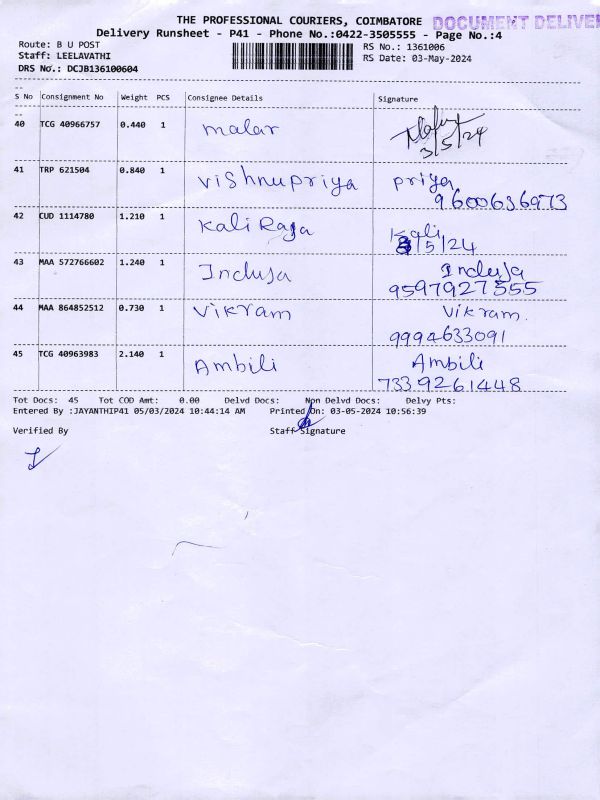 THE PROFESSIONAL COURIERS, COIMBATORE
DOCUMENT DELIVER
Delivery Runsheet - P41 - Phone No.:0422-3505555 - Page No.:4
Route: B U POST
RS No.: 1361006
Staff: LEELAVATHI
RS Date: 03-May-2024
DRS No.: DCJB136100604
S No Consignment No Weight PCS Consignee Details Signature
40 TCG 40966757 0.440 1 malar
3/5/24
41 TRP 621504 0.840 1 vishnupriya priya
9600636973
42 CUD 1114780 1.210 1 kali Raja kali
3/5/24
43 MAA 572766602 1.240 1 Induja Induja
9597927555
44 MAA 864852512 0.730 1 vikram vikram.
9994633091
45 TCG 40963983 2.140 1 Ambili Ambili
7339261448
Tot Docs: 45 Tot COD Amt: 0.00 Delvd Docs: Non Delvd Docs: Delvy Pts:
Entered By :JAYANTHIP41 05/03/2024 10:44:14 AM Printed On: 03-05-2024 10:56:39
Verified By Staff Signature